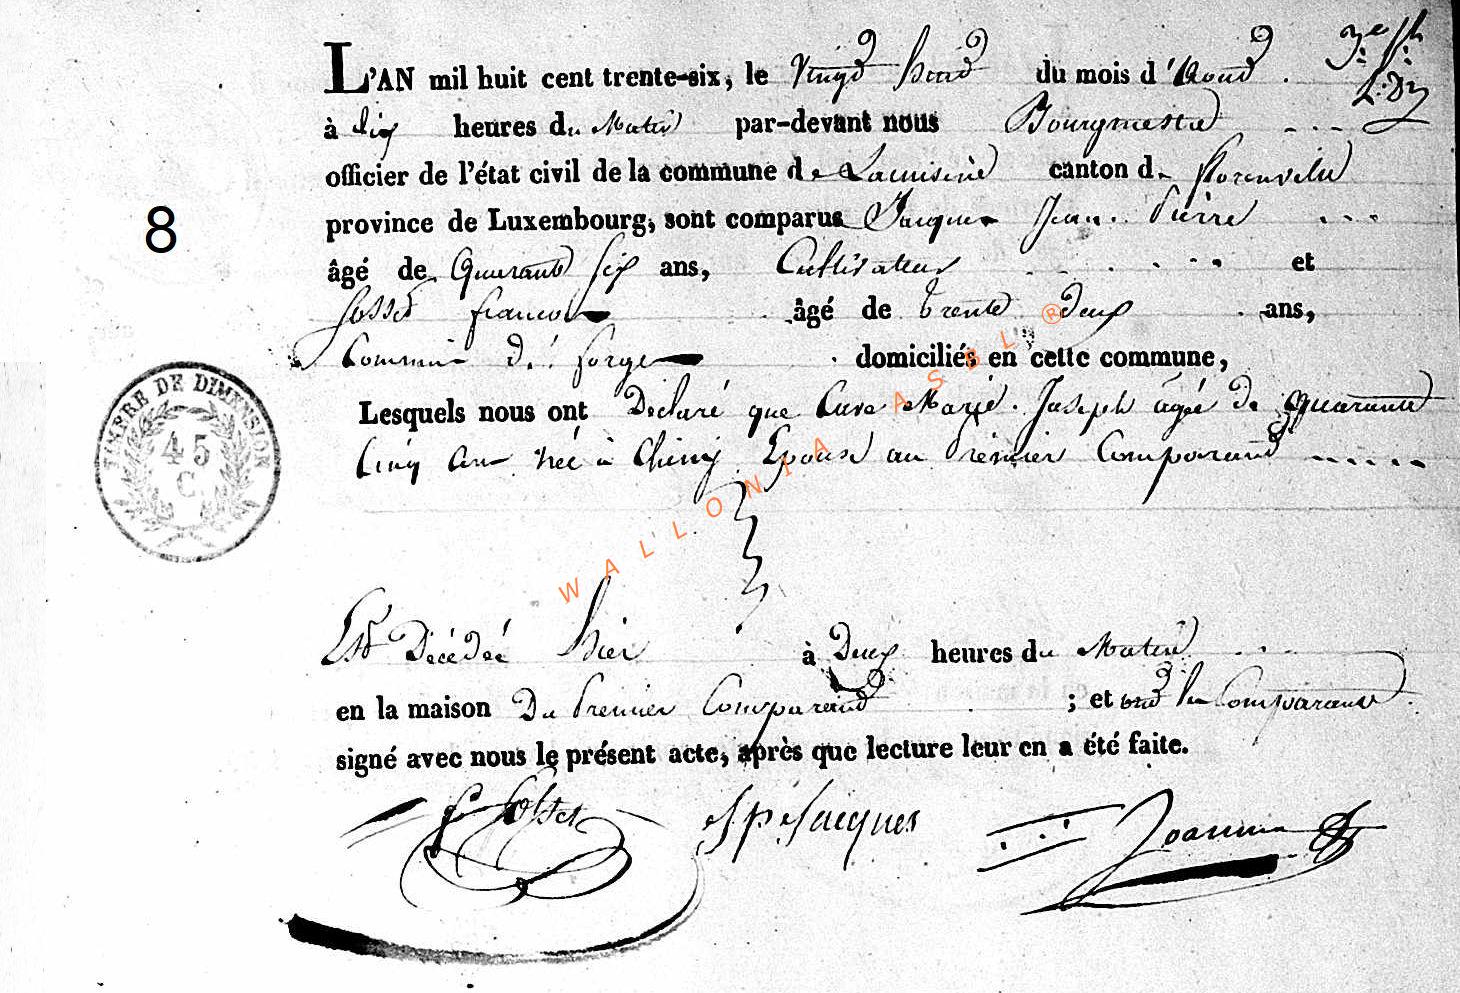 L'AN mil huit cent trente-six, le Vingt huit du mois d'Aout
à dix heures du Matin par-devant nous Bourgmestre
officier de l'état civil de la commune de Lacuisine canton de florenville
province de Luxembourg, sont comparus Jacques Jean Pierre
8
âgé de Quarante six ans, Cultivateur et
Gosset francois âgé de trente Deux ans,
Commis de forge domiciliés en cette commune,
TIMBRE DE DIMENSION
45
C
Lesquels nous ont Declaré que Cure Marie Joseph agée de Quarante
Cinq ans née à Chiny Epouse au Premier Comparant
WALLONIA ASBL ®
Est Décédée hier à Deux heures du Matin
en la maison Du Premier Comparant ; et ont les Comparants
signé avec nous le présent acte, après que lecture leur en a été faite.
f Gosset JPJacques Joannes